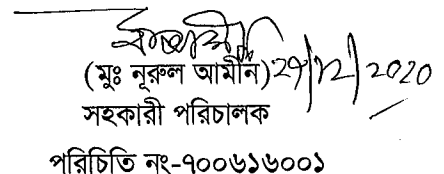 (মুঃ নূরুল আমীন) 29/12/2020
সহকারী পরিচালক
পরিচিতি নং-৭০০৬১৬০০১